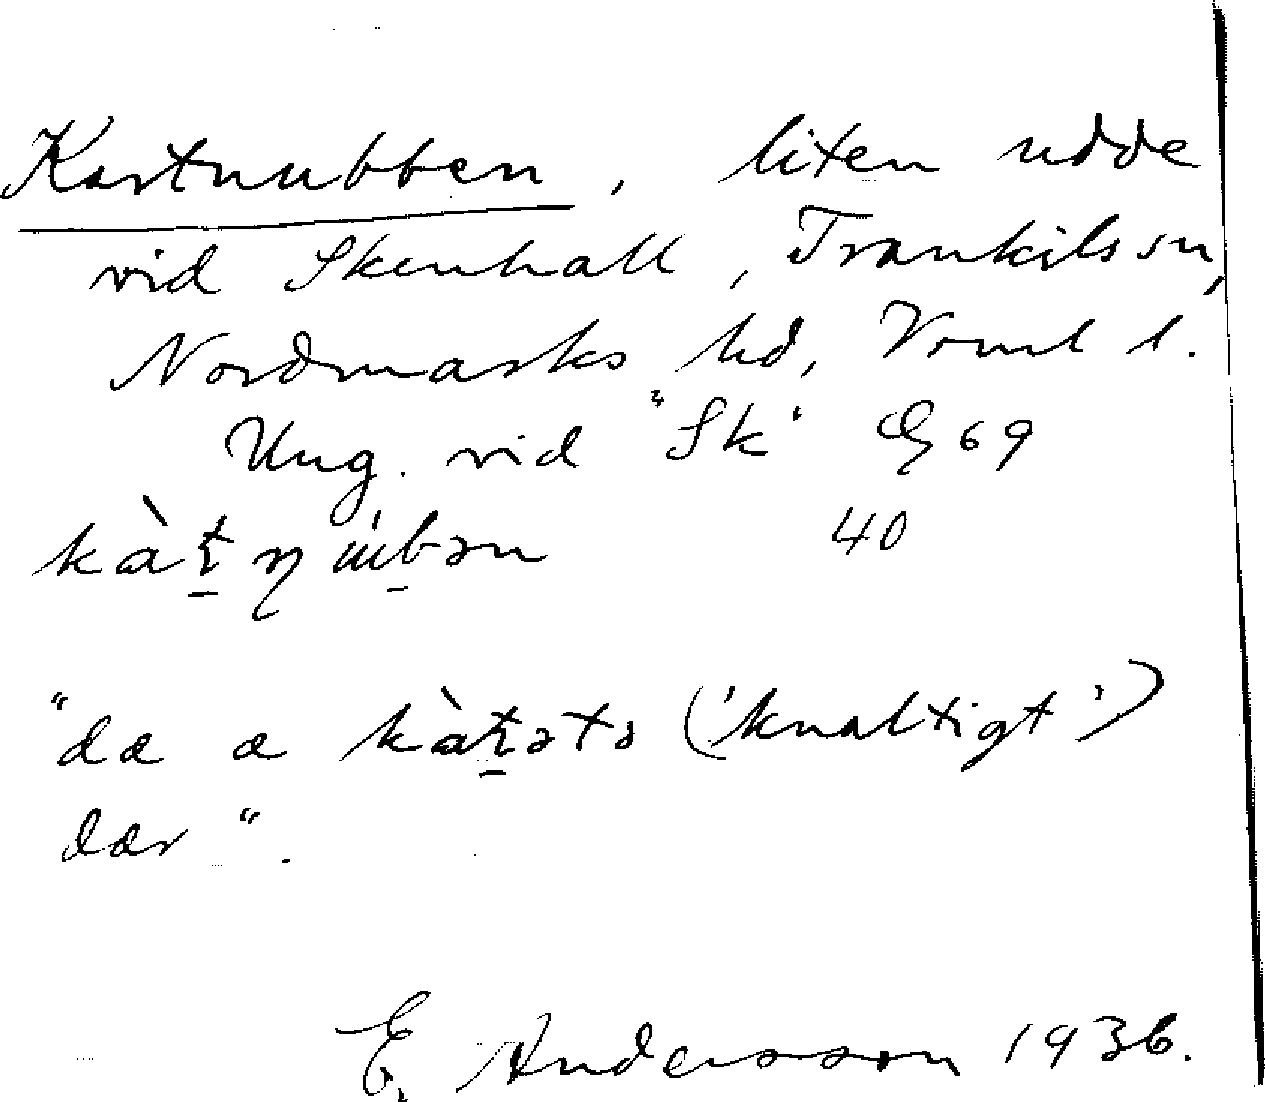 Kartnubben, liten udde
vid Skenhall, Trankils sn,
Nordmarks hd, Vrml l.
Ung. vid "Sk" G 69
40
"dæ æ ("knaltigt")
dær".
E. Andersson 1936.